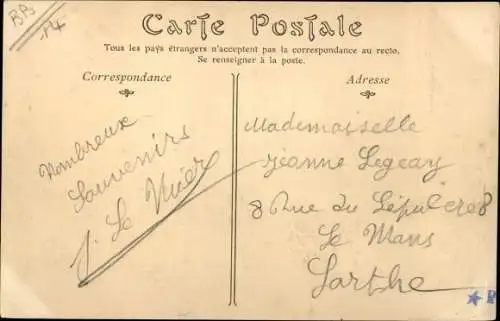 BB
14
Carte Postale
Tous les pays étrangers n'acceptent pas la correspondance au recto.
Se renseigner à la poste.
Correspondance
Nombreux
Souvenirs
J. Le
Adresse
Mademoiselle
Jeanne Legeay
8 Rue du Sépulcre 8
Le Mans
Sarthe